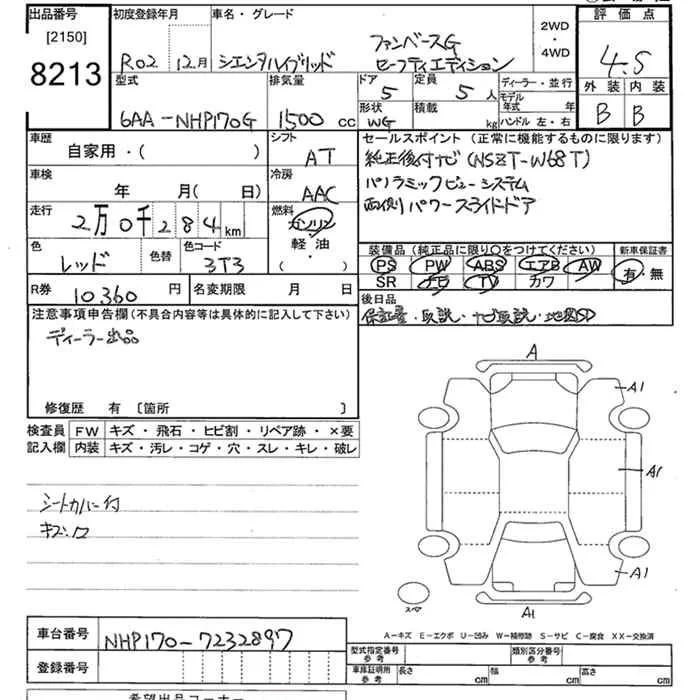 出品番号 初度登録年月 車名・グレード 2WD・4WD 評価点
[2150]
8213 R02 12月 シエンタハイブリッド ファンベースG セーフティエディション 4.5
型式 排気量 ドア 定員 ディーラー・並行 外装 内装
6AA-NHP170G 1500 cc 5 5人 モデル年式 年 B B
形状 WG 積載 kg ハンドル 左・右
車歴 自家用・( ) シフト AT セールスポイント (正常に機能するものに限ります)
純正後付ナビ(NSZT-W68T)
車検 年 月(日) 冷房 AAC パノラミックビューシステム
走行 2万0千284km 燃料 ガソリン 両側パワースライドドア
軽・油
( )
色 レッド 色替 色コード 3T3 装備品 (純正品に限り○をつけてください) 新車保証書
PS PW ABS エアB AW 有・無
SR ナビ TV カワ
R券 10360円 名変期限 月 日 後日品
保証書・取説・ナビ取説・地図SD
注意事項申告欄(不具合内容等は具体的に記入して下さい)
ディーラー出品
修復歴 有 〔箇所 〕
検査員記入欄 FW キズ・飛石・ヒビ割・リペア跡・×要
内装 キズ・汚レ・コゲ・穴・スレ・キレ・破レ
シートカバー付
キズ・ロ
A
A1
A1
A1
A1
スペア
A-キズ E-エクボ U-凹み W-補修跡 S-サビ C-腐食 XX-交換済
車台番号 NHP170-7232897
型式指定番号 参考 類別区分番号 参考
登録番号 車庫証明用 参考 長さ cm 幅 cm 高さ cm
希望出品コーナー